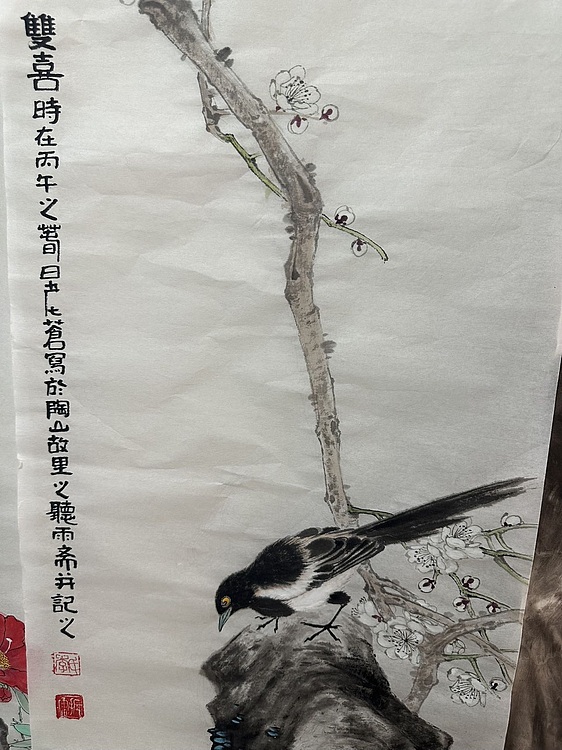 雙喜 時在丙午之萅日 蒼寫於陶山故里之聽雨斋并記之